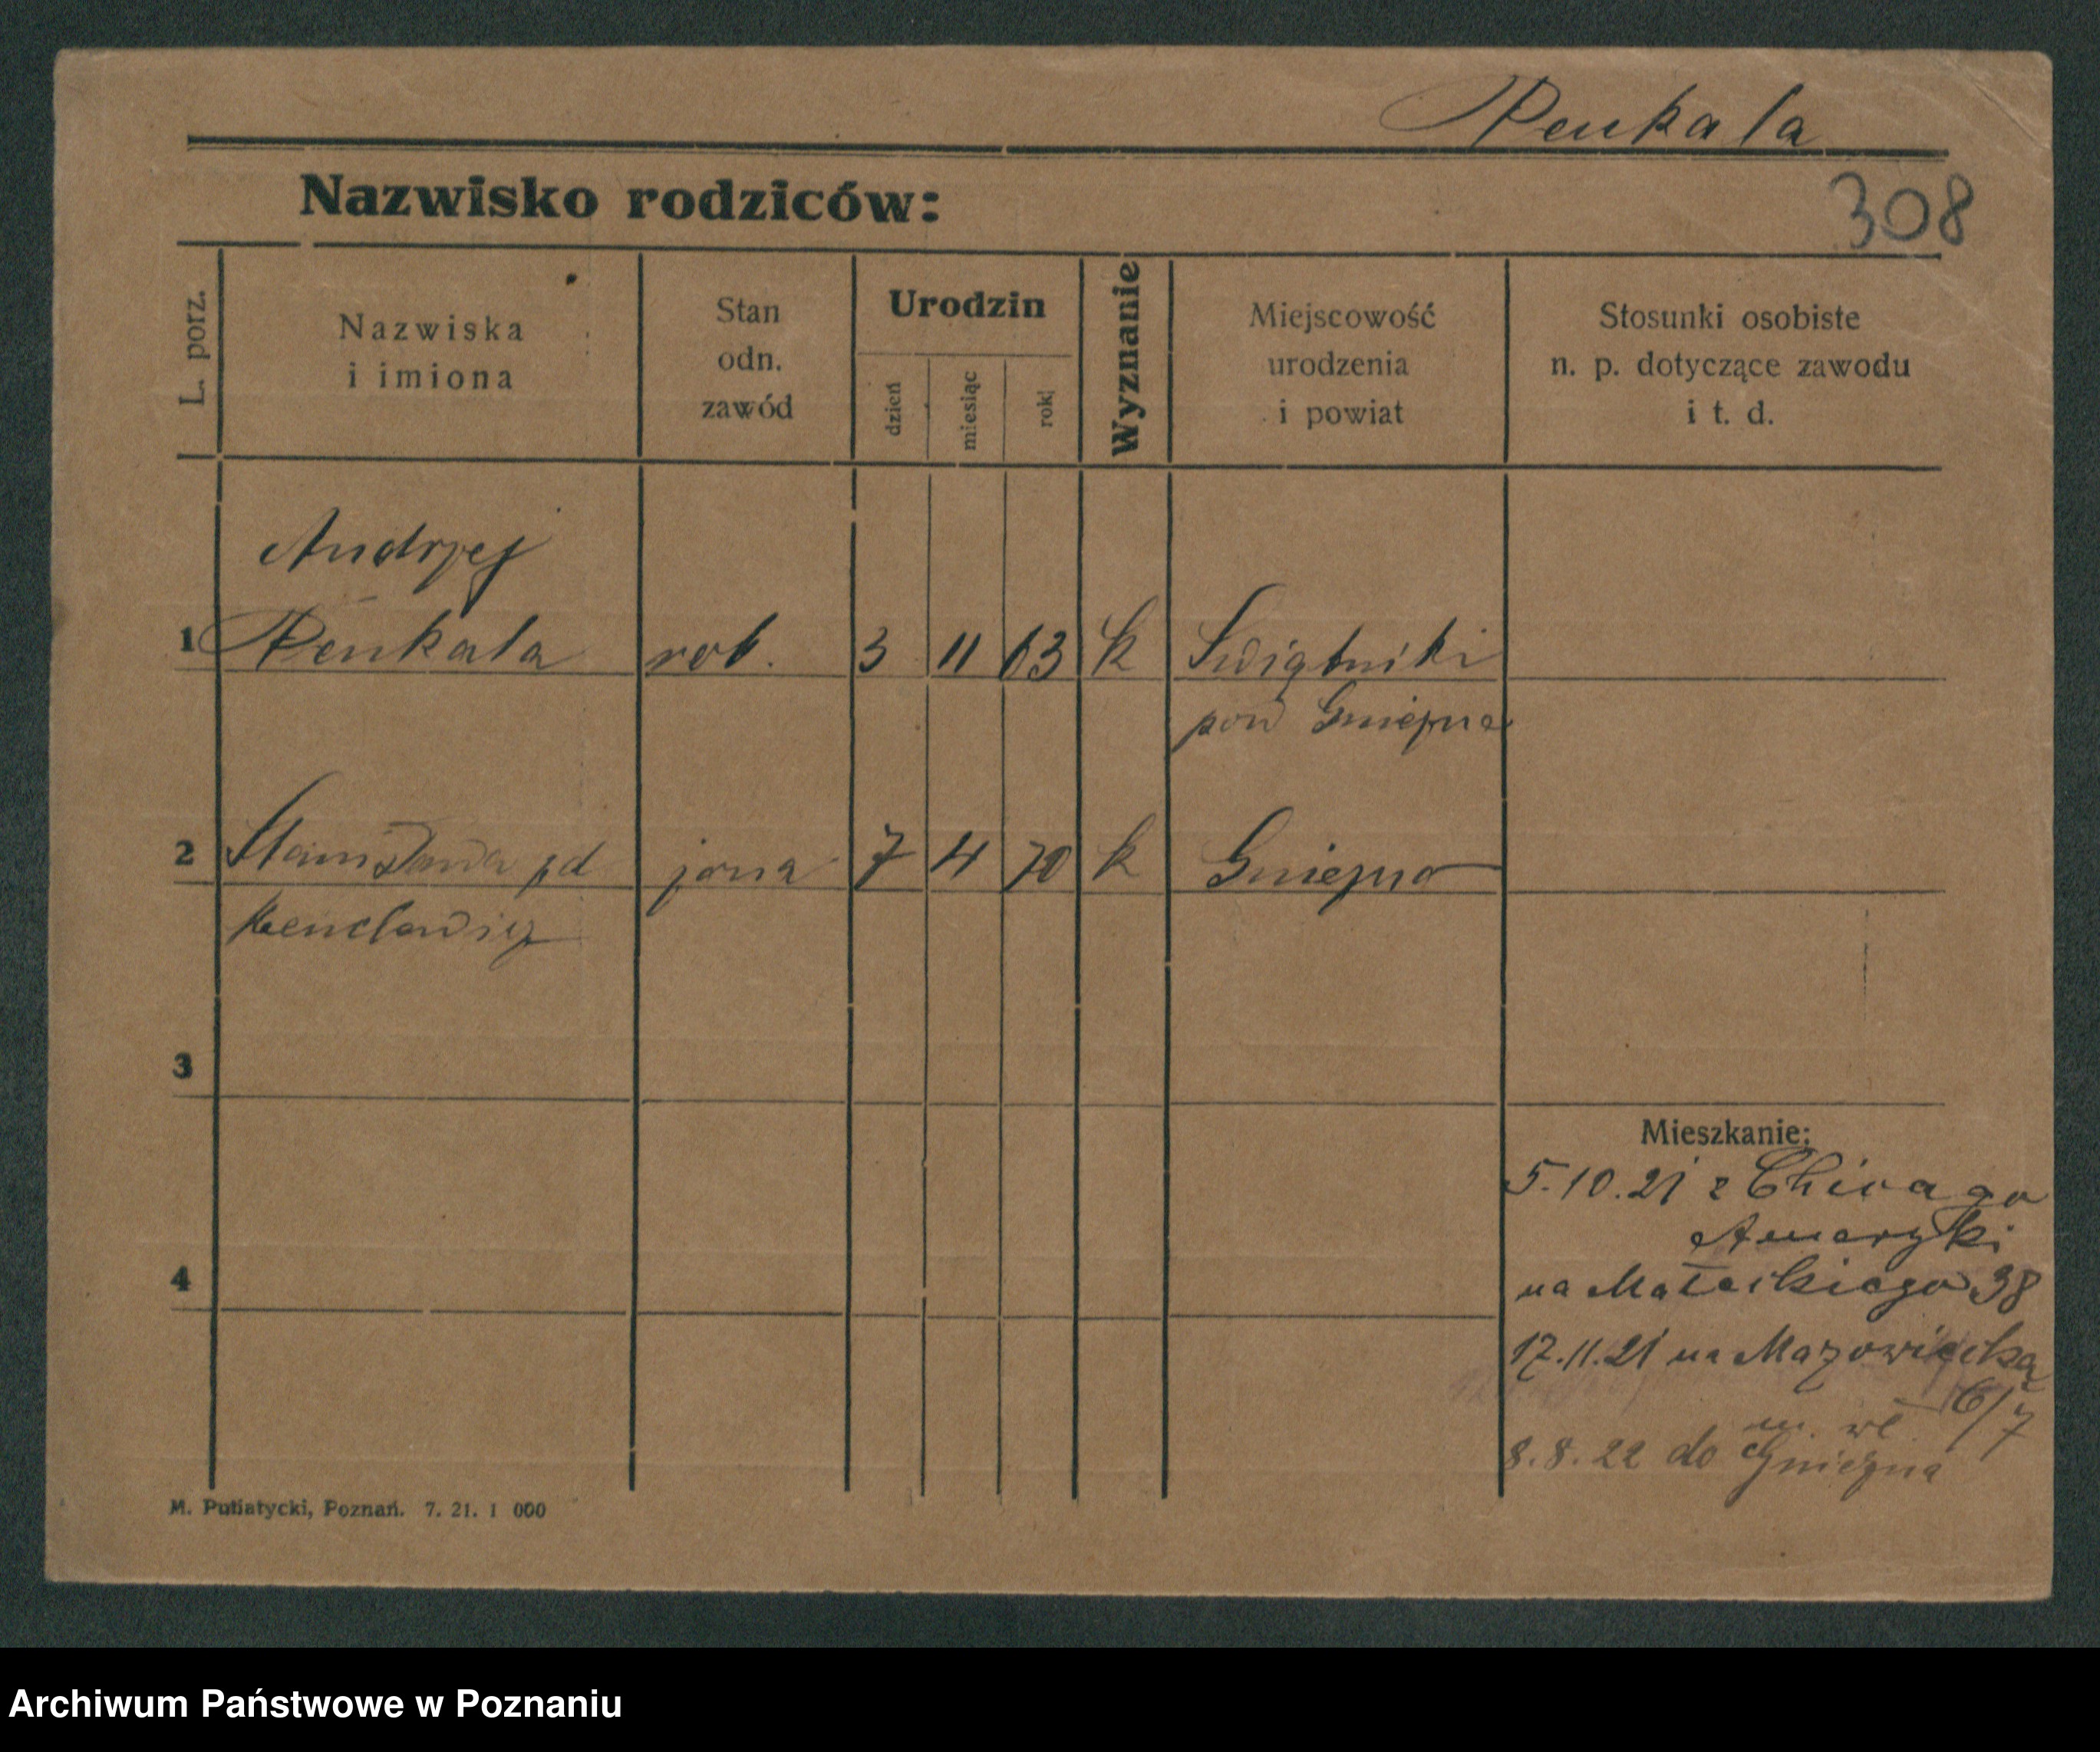 Penkala
308
Nazwisko rodziców:
L. porz.
Nazwiska
i imiona
Stan
odn.
zawód
Urodzin
dzień
miesiąc
rok
Wyznanie
Miejscowość
urodzenia
i powiat
Stosunki osobiste
n. p. dotyczące zawodu
i t. d.
Andrzej
1 Penkala rob. 3 11 63 k Swiątniki
pow Gniezno
2 Stanisława zd żona 7 4 70 k Gniezno
3
4
Mieszkanie:
5.10.21 z Chicago
Ameryki
na Małeckiego 38
17.11.21 na Mazowiecką
6/7
8.8.22 do Gniezna
M. Putiatycki, Poznań. 7. 21. 1 000
Archiwum Państwowe w Poznaniu